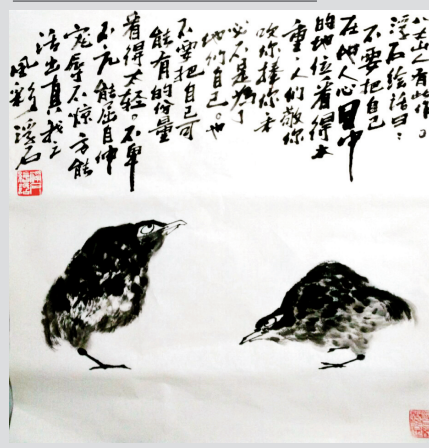 八大山人有此作。
浮石绘话曰：
不要把自己
在他人心目中
的地位看得太
重，人们敬你
吹你捧你未
必不是为了
他们自己。也
不要把自己可
能有的份量
看得太轻。不卑
不亢能屈自伸
宠辱不惊方能
活出真我之
风彩 浮石